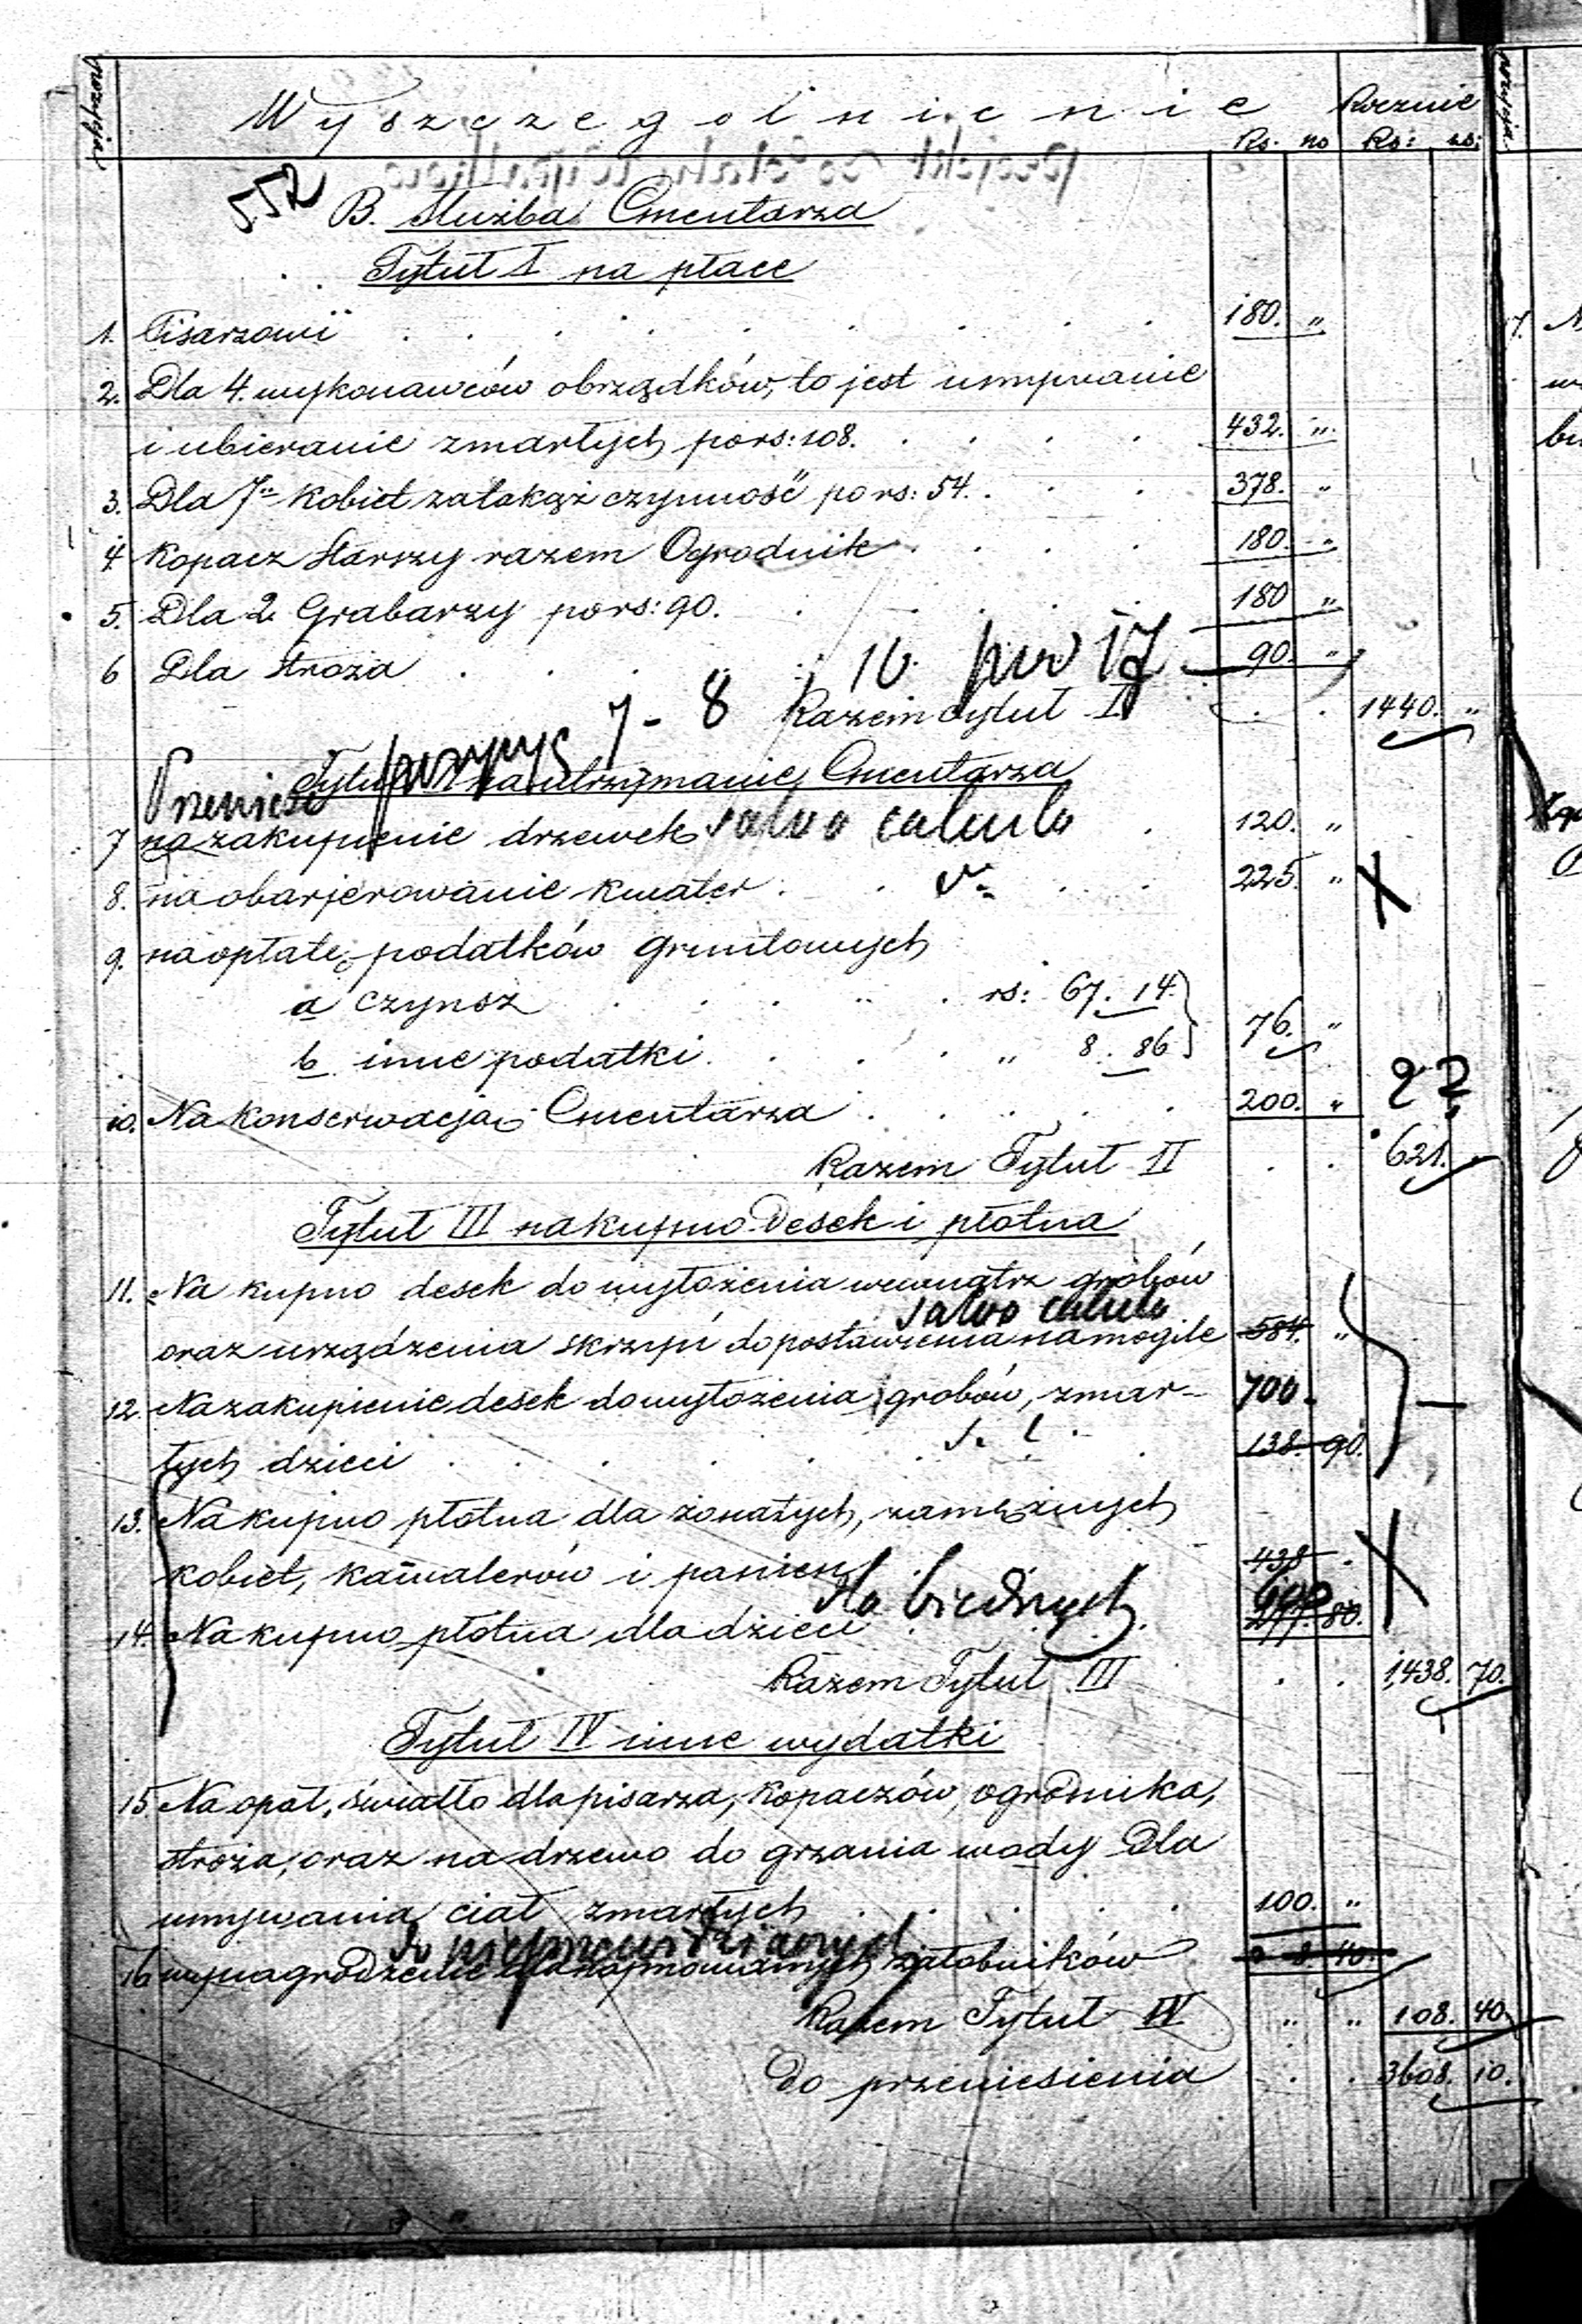 pozycja
Wyszczegolnienie
Rocznie
Rs. no Rs: no:
552
B. Służba Cmentarza
Tytuł I na płace
1. Pisarzowi . . . 180. "
2. Dla 4. wykonawców obrządków, to jest umywanie
i ubieranie zmarłych po rs: 108. . . . 432. "
3. Dla 7" kobiet za takąż czynność po rs: 54. . . 378. "
4. Kopacz Starszy razem Ogrodnik . . . 180. "
5. Dla 2 Grabarzy po rs: 90. . . . 180 "
6 Dla stroża . . . 90. "
16. 17
7 - 8 Razem Tytuł I . . 1440. "
Tytuł II na utrzymanie Cmentarza
Przenieść
7 na zakupienie drzewek salvo calculo . 120. "
8. na obarjerowanie kwater . . . 225. " X
9. na opłatę podatków gruntowych
a czynsz . . . rs: 67. 14.
b inne podatki . . . " 8. 86 76. "
10. Na konserwacją Cmentarza . . . 200. " 2?
Razem Tytuł II . . 621.
Tytuł III na kupno desek i płótna
11. Na kupno desek do wyłożenia wewnątrz grobów
salvo calculo
oraz urządzenia skrzyń do postawienia na mogile 584. "
12. Na zakupienie desek do wyłożenia grobów, zmar- 700.
s. c.
łych dzieci . . . 138. 90.
13. Na kupno płótna dla żonatych, zamężnych
kobiet, kawalerów i panien 438 . X
dla biednych 600
14. Na kupno płótna dla dzieci . . . 277. 80.
Razem Tytuł III . . 1438. 70.
Tytuł IV inne wydatki
15 Na opał, światło dla pisarza, kopaczów, ogrodnika,
stroża, oraz na drzewo do grzania wody dla
umywania ciał zmarłych . . . 100. "
16 wynagrodzenie dla najmowanych żałobników 8. 40.
Razem Tytuł IV " " 108. 40.
do przeniesienia . . 3608. 10.